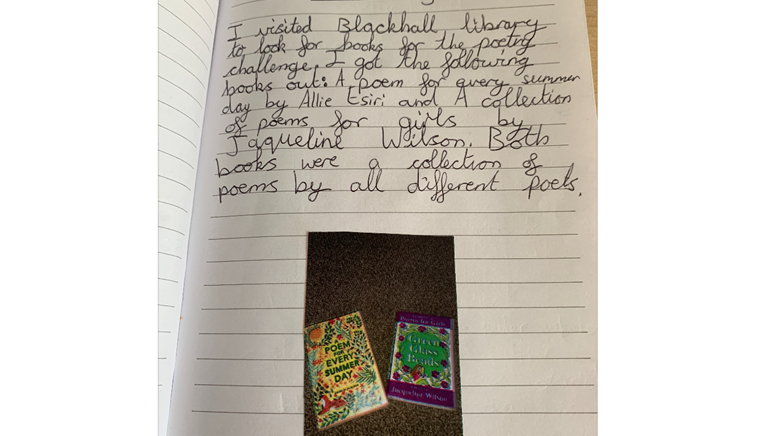 I visited Blackhall library
to look for books for the poetry
challenge. I got the following
books out: A poem for every summer
day by Allie Esiri and A collection
of poems for girls by
Jaqueline Wilson. Both
books were a collection of
poems by all different poets.
A
POEM
FOR
EVERY
SUMMER
DAY
Poems for Girls
Green
Glass
Beads
Jacqueline Wilson